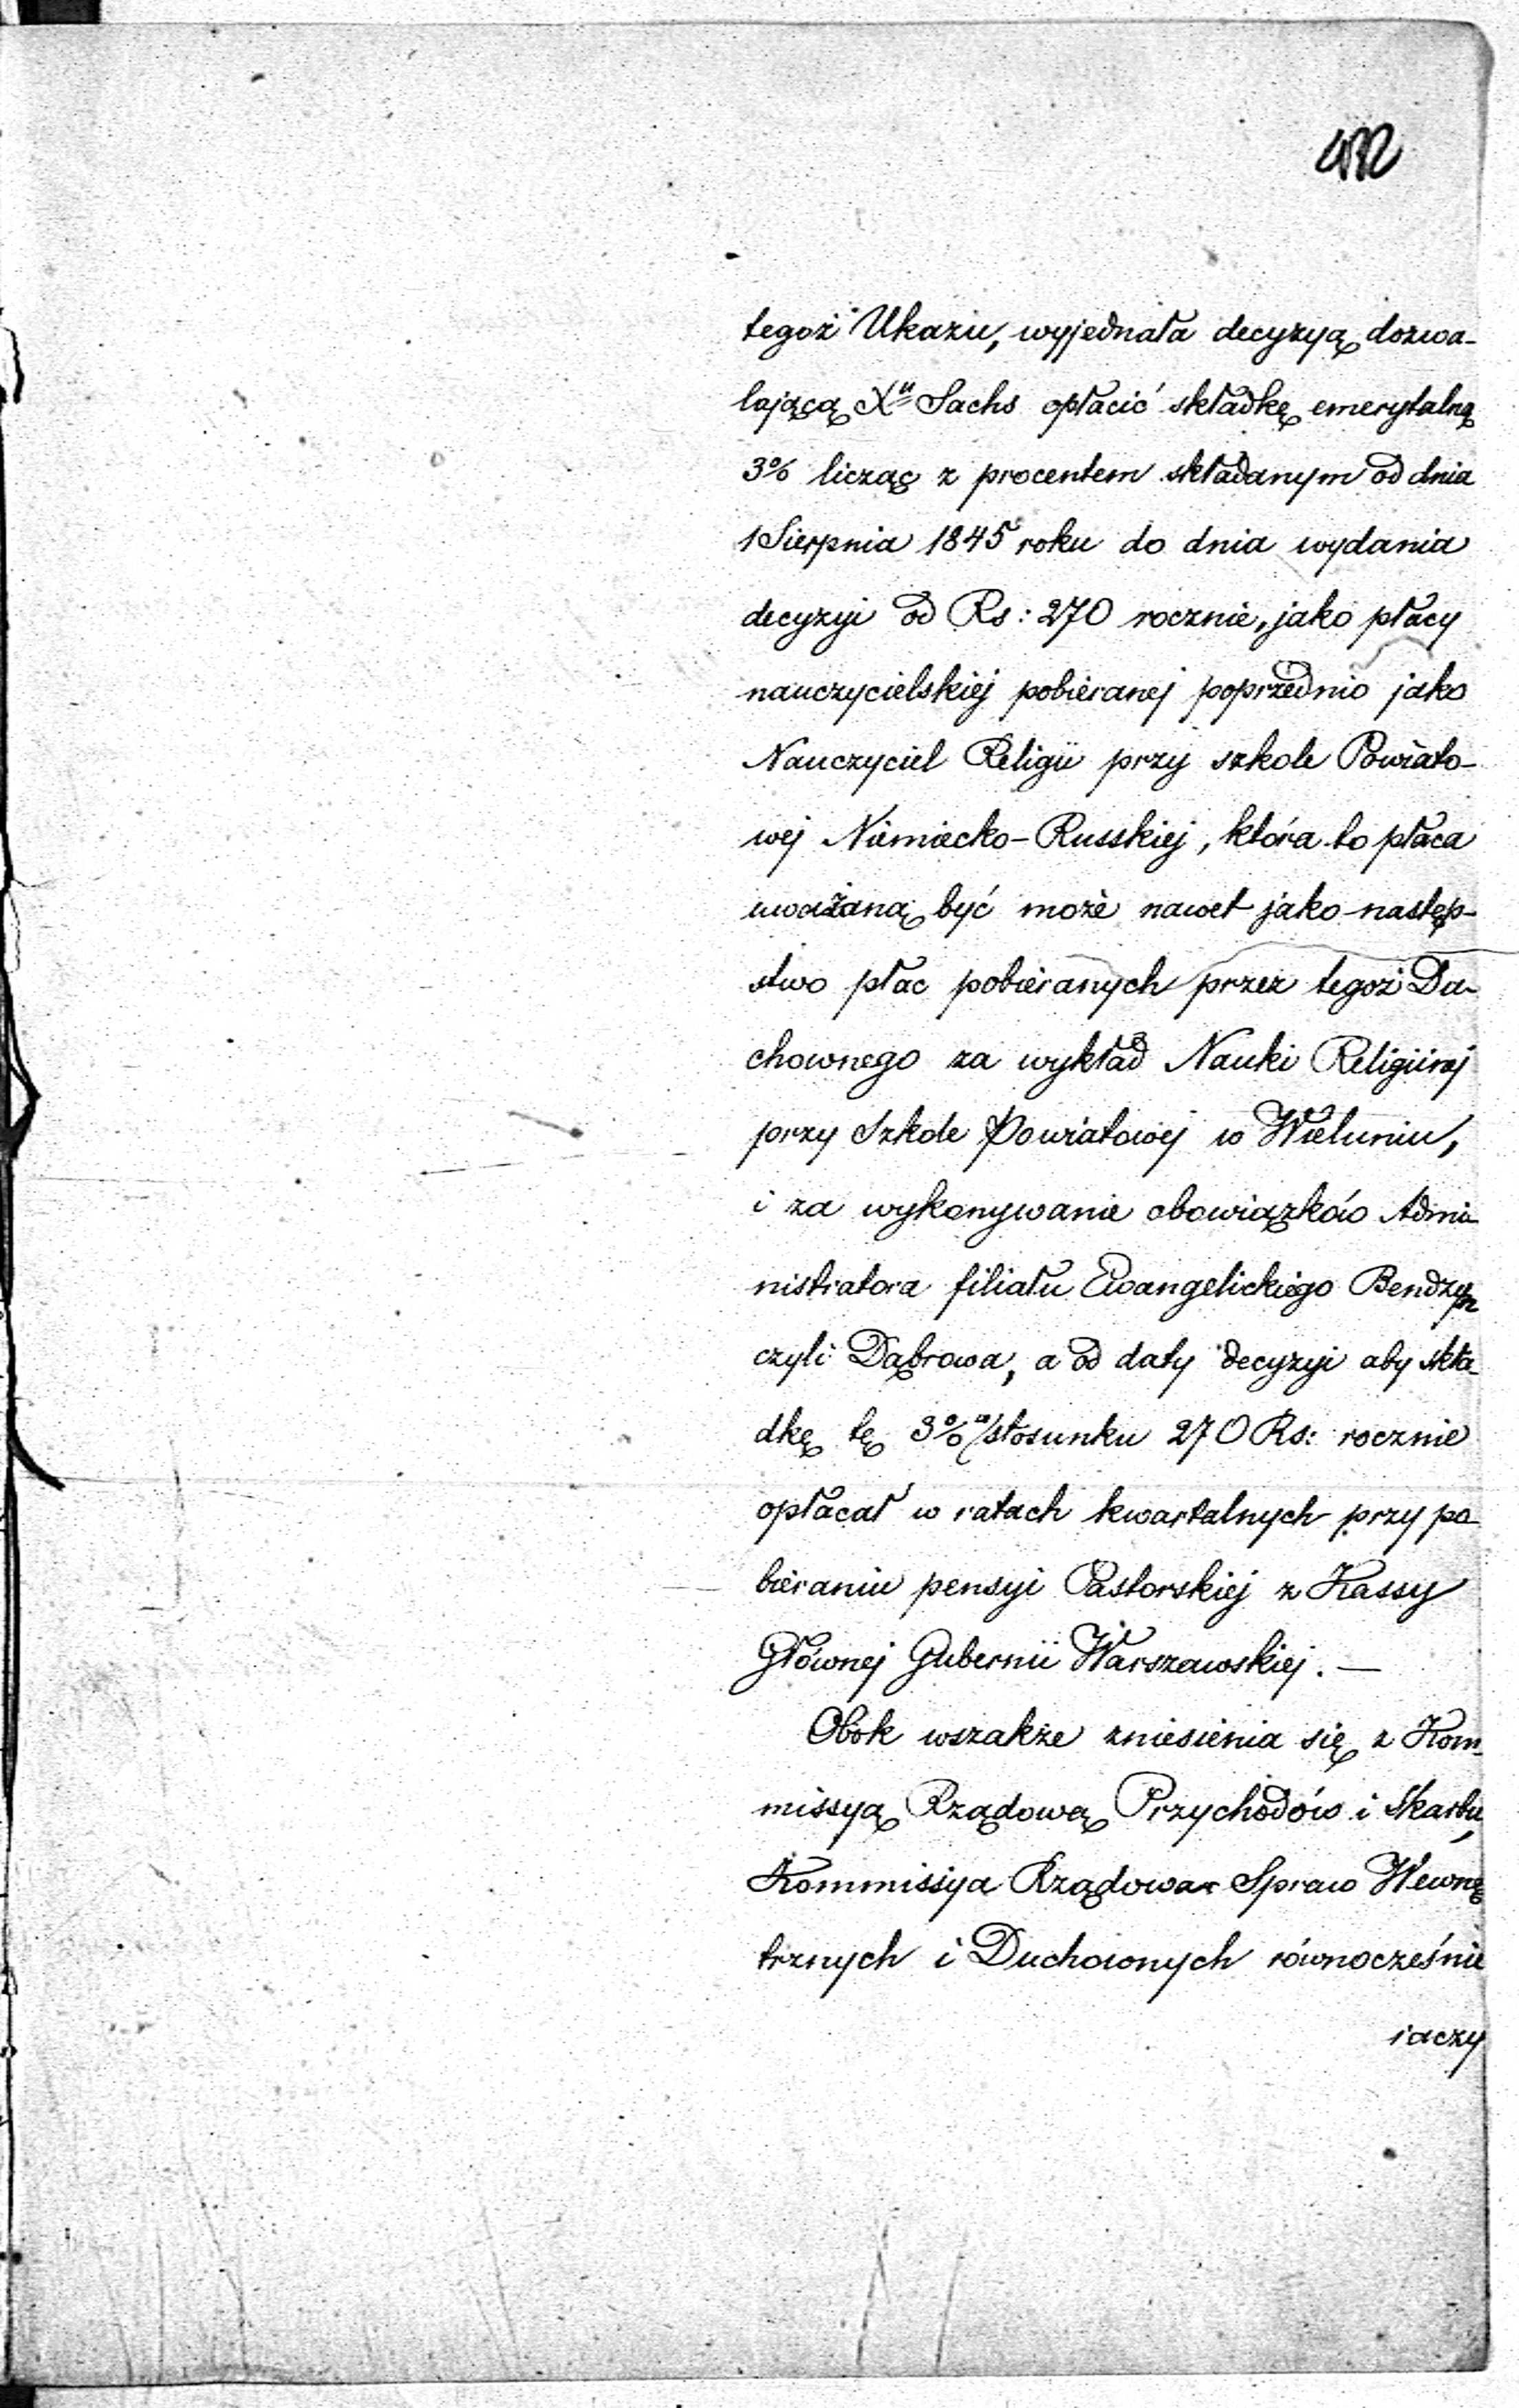 tegoż Ukazu, wyjednała decyzyą dozwa-
lającą Xu Sachs opłacić składkę emerytalną
3% licząc z procentem składanym od dnia
1 Sierpnia 1845 roku do dnia wydania
decyzyi od Rs: 270 rocznie, jako płacy
nauczycielskiej pobieranej poprzednio jako
Nauczyciel Religii przy szkole Powiato-
wej Niemiecko-Russkiej, która to płaca
uważaną być może nawet jako następ-
stwo płac pobieranych przez tegoż Du-
chownego za wykład Nauki Religiinej
przy Szkole Powiatowej w Wieluniu,
i za wykonywanie obowiązków Admi-
nistratora filiału Ewangelickiego Bendzyn
czyli Dąbrowa, a od daty decyzyi aby skła-
dkę tę 3% w stosunku 270 Rs: rocznie
opłacał w ratach kwartalnych przy po-
bieraniu pensyi Pastorskiej z Kassy
Głównej Gubernii Warszawskiej. —
Obok wszakże zniesienia się z Kom-
missyą Rządową Przychodów i Skarbu,
Kommissya Rządowa Spraw Wewnę
trznych i Duchownych równocześnie
raczy